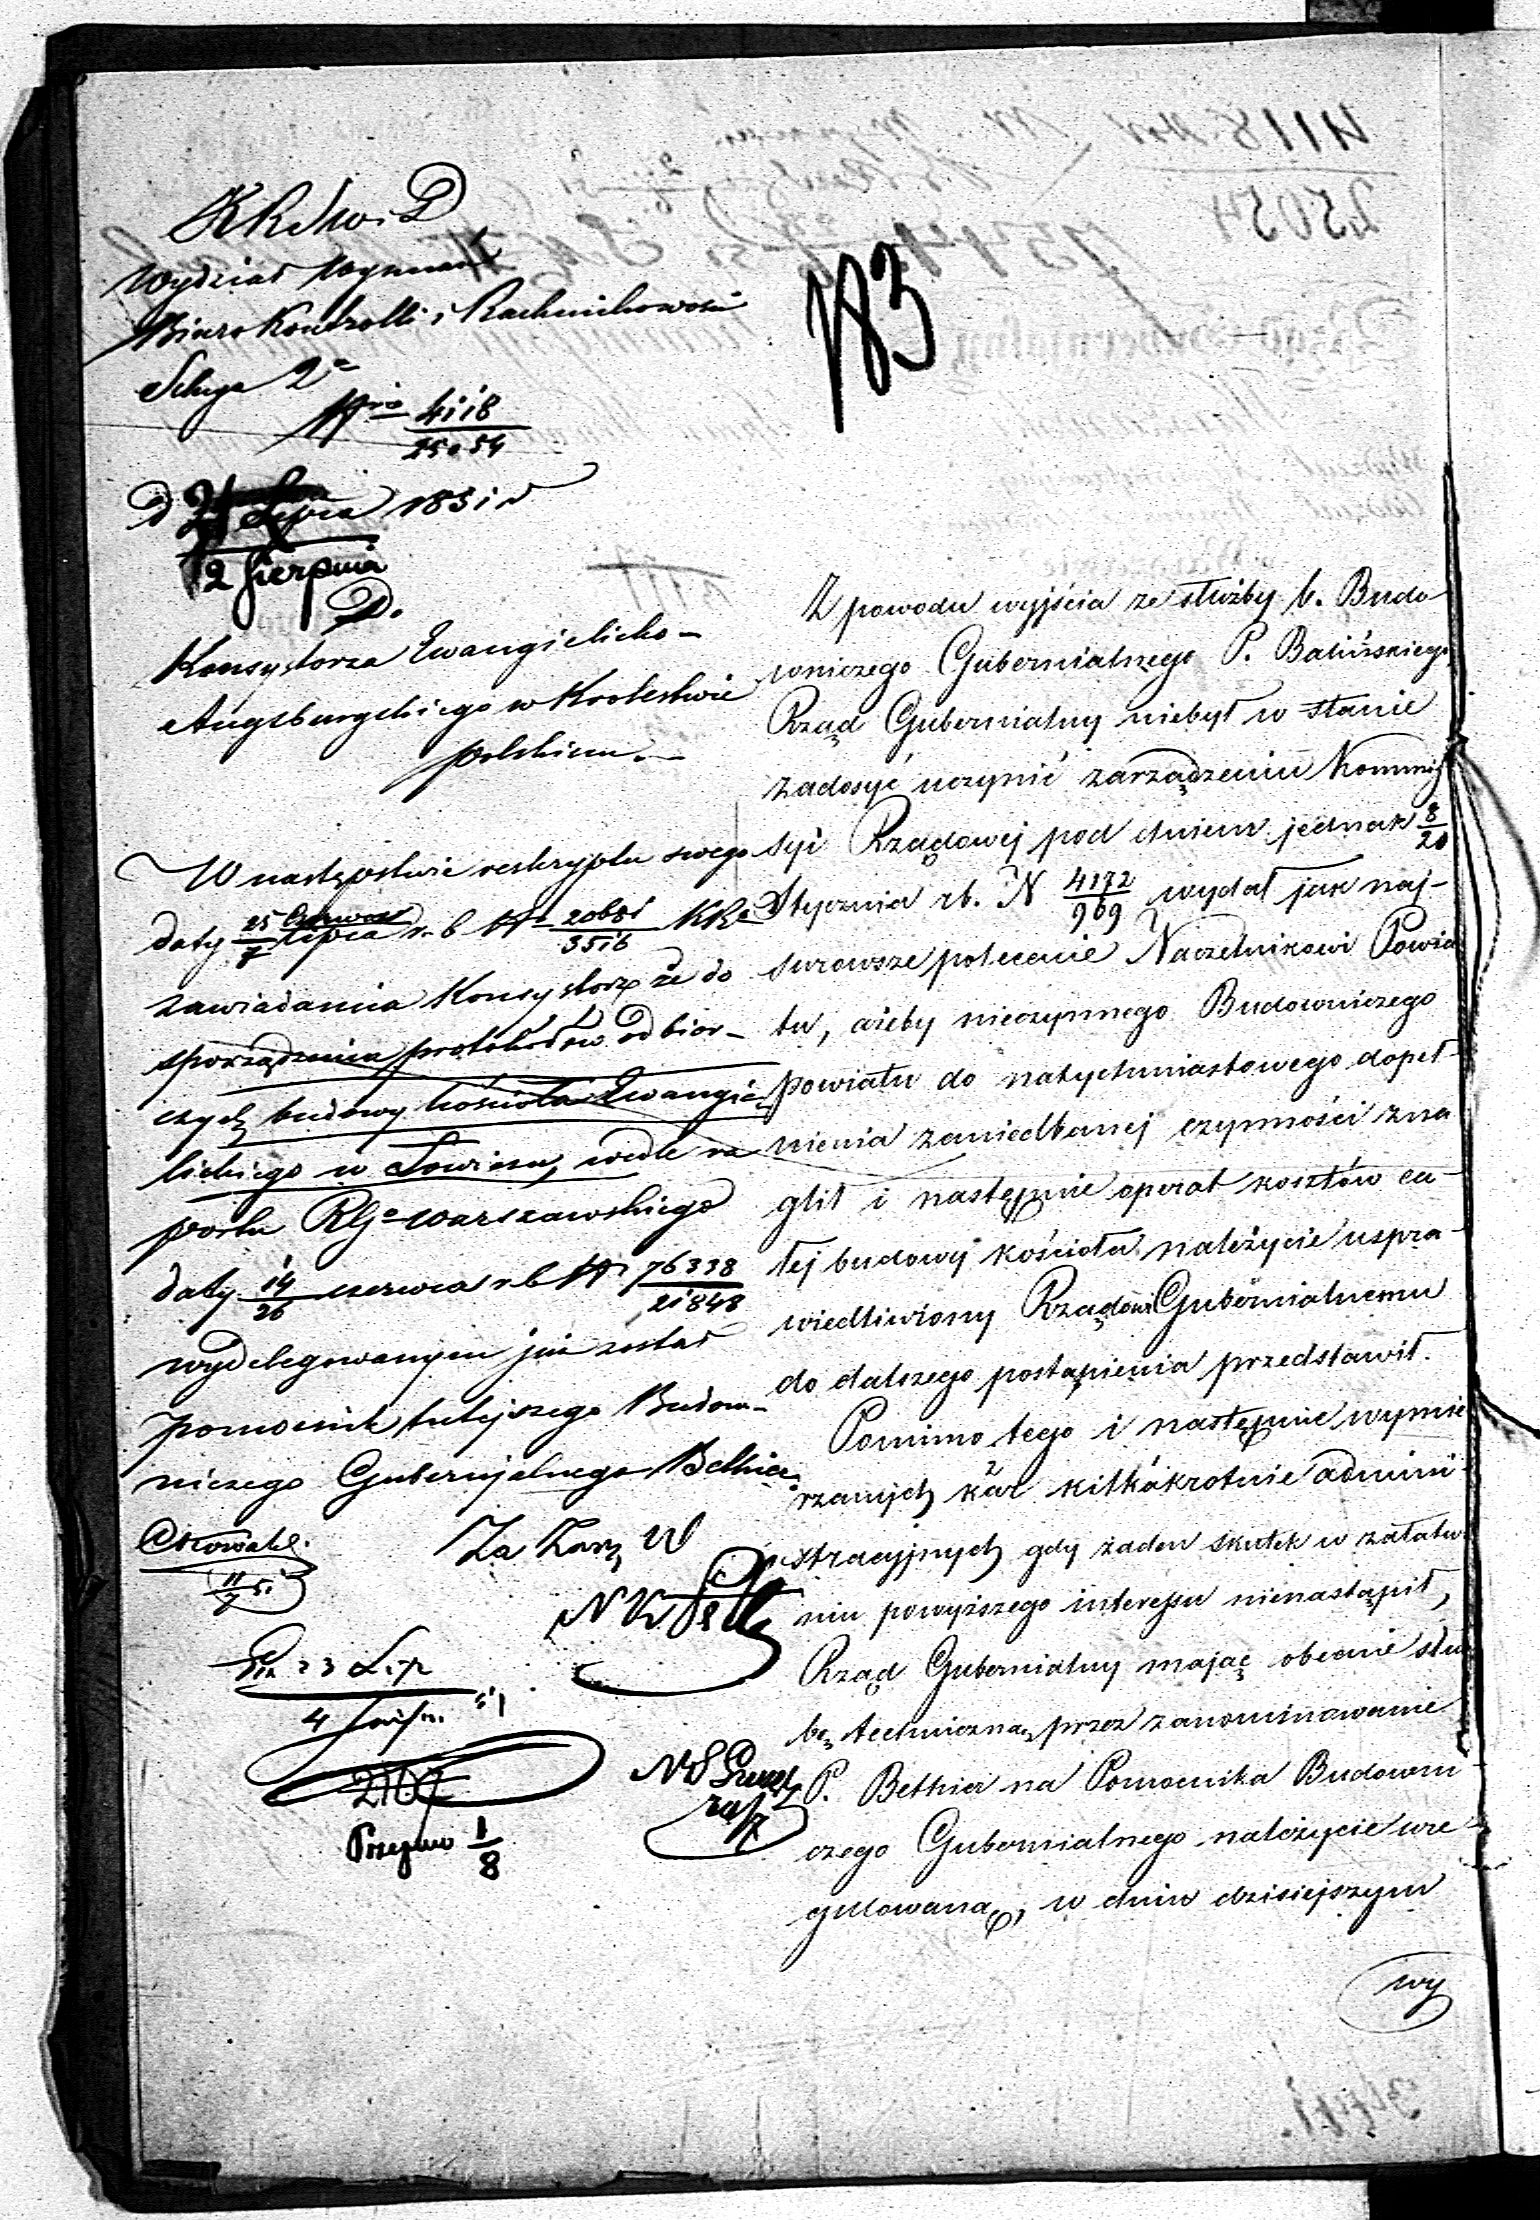 183
KRSW i D
Wydział Wyznań
Biuro Kontrolli i Rachunkowości
Sekcya 2a
No 4118/25054
D 21 Lipca 1851 r
2 Sierpnia
Do
Konsystorza Ewangielicko-
Augsburgskiego w Królestwie
polskiem.
W następstwie reskryptu swego
daty 25 Czerwca/7 Lipca r. b No 20681/3516 KRa
zawiadamia Konsystorz że do
sporządzenia protokółów odbior-
czych budowy kościoła Ewangie-
lickiego w Łowiczu, wedle ra
portu RGo Warszawskiego
daty 14/26 czerwca r b No 76338/21848
wydelegowanym już został
pomocnik tutejszego Budow-
niczego Gubernjalnego Bethier.
Za Zarz. W
11/7 51
23 Lip
4 51
2107
Przejrz 1/8
Z powodu wyjścia ze służby b. Budo
wniczego Gubernialnego P. Balińskiego
Rząd Gubernialny niebył w stanie
zadosyć uczynić zarządzeniu Kommis
syi Rządowej pod dniem jednak 8/20
Stycznia rb. N 4172/969 wydał jak naj-
surowsze polecenie Naczelnikowi Powia
tu, ażeby nieczynnego Budowniczego
powiatu do natychmiastowego dopeł-
nienia zaniedbanej czynności zna
glił i następnie operat kosztów ca-
łej budowy kościoła należycie uspra-
wiedliwiony Rządowi Gubernialnemu
do dalszego postąpienia przedstawił.
Pomimo tego i następnie wymie
rzanych kar kilkakrotnie admini-
stracyjnych gdy żaden skutek w załatw
niu powyższego interessu nienastąpił,
Rząd Gubernialny mając obecnie słu
bę techniczną, przez zanominowanie
P. Bethier na Pomocnika Budowni
czego Gubernialnego należycie ure
gulowaną, w dniu dzisiejszym
wy